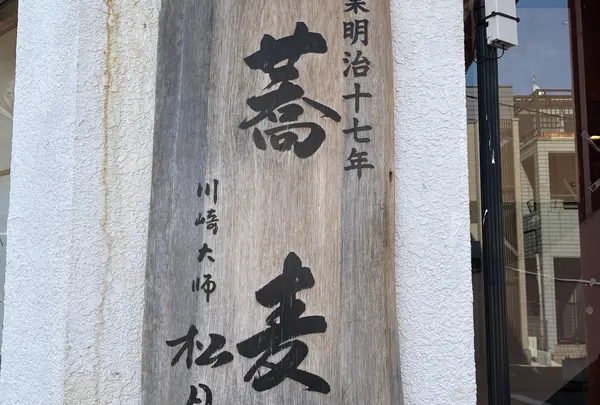 業明治十七年
蕎麦
川崎大師
松月